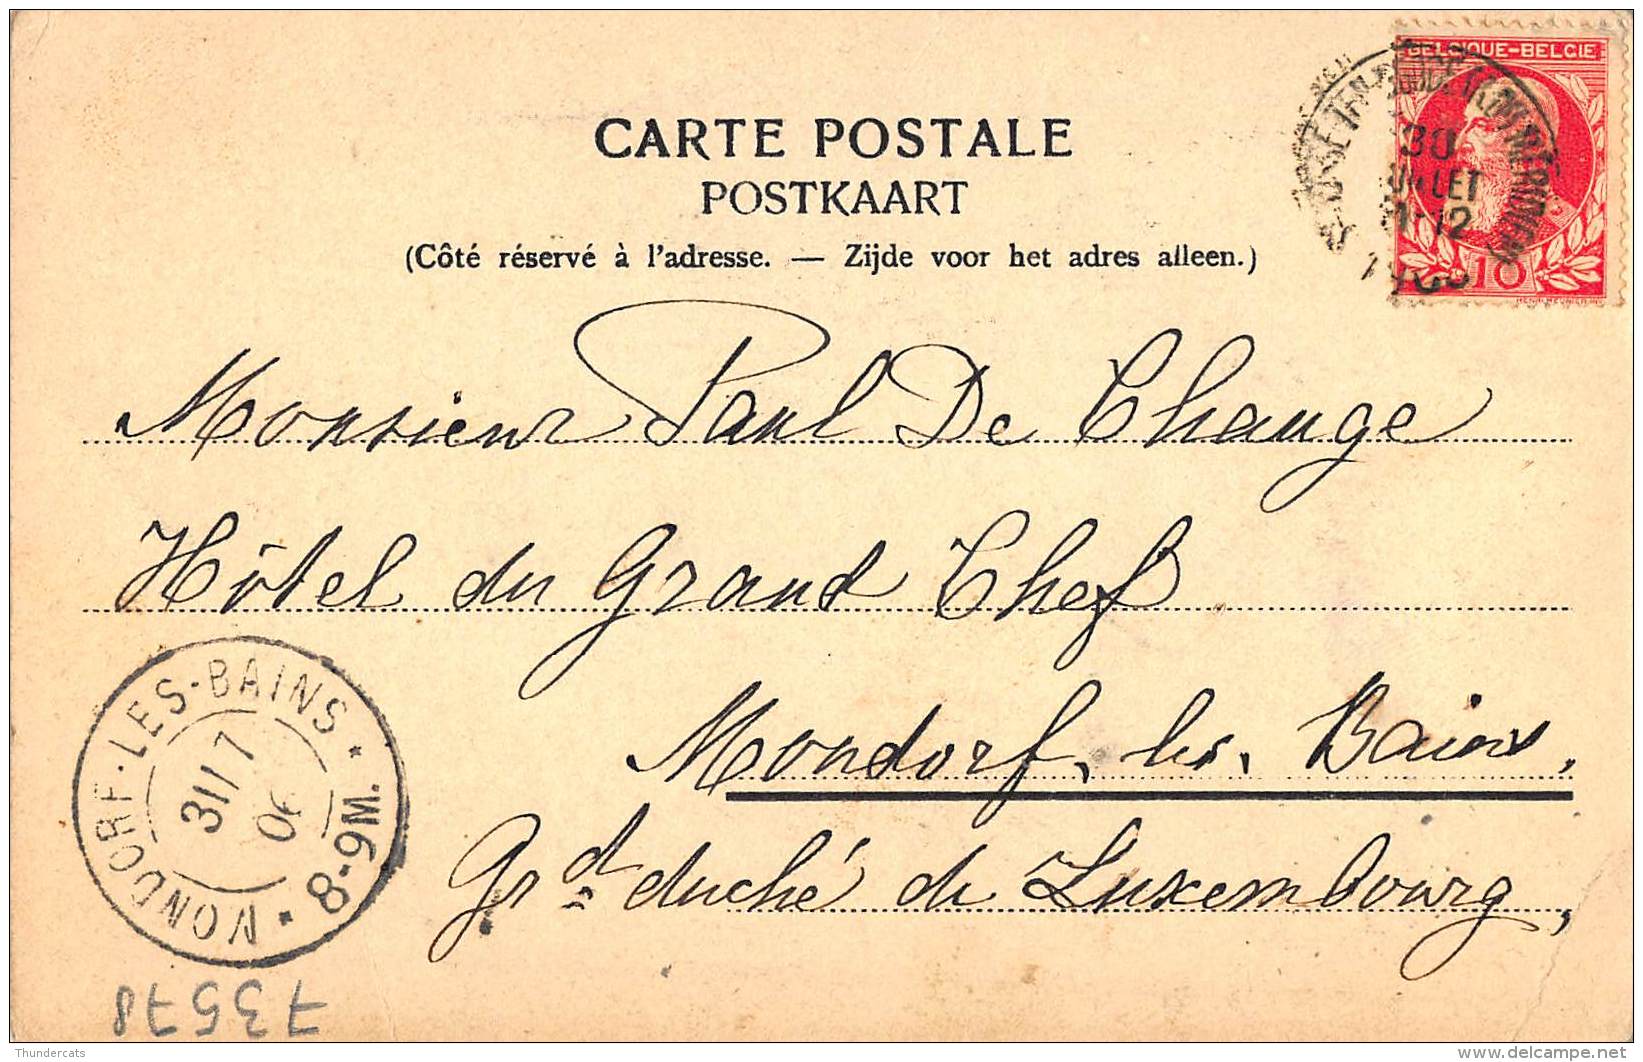 BELGIQUE-BELGIE
30
JUILLET
11-12
10
CARTE POSTALE
POSTKAART
(Côté réservé à l'adresse. — Zijde voor het adres alleen.)
Monsieur Paul De Change
Hôtel du Grand Chef
Mondorf. les. Bains,
Grd duché de Luxembourg,
MONDORF-LES-BAINS
31 7
06
8-9M.
73578
Thundercats
www.delcampe.net